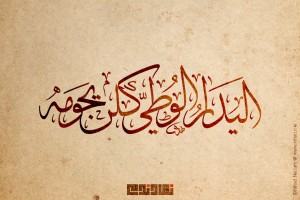 اليدار الوطي كلن يجومه